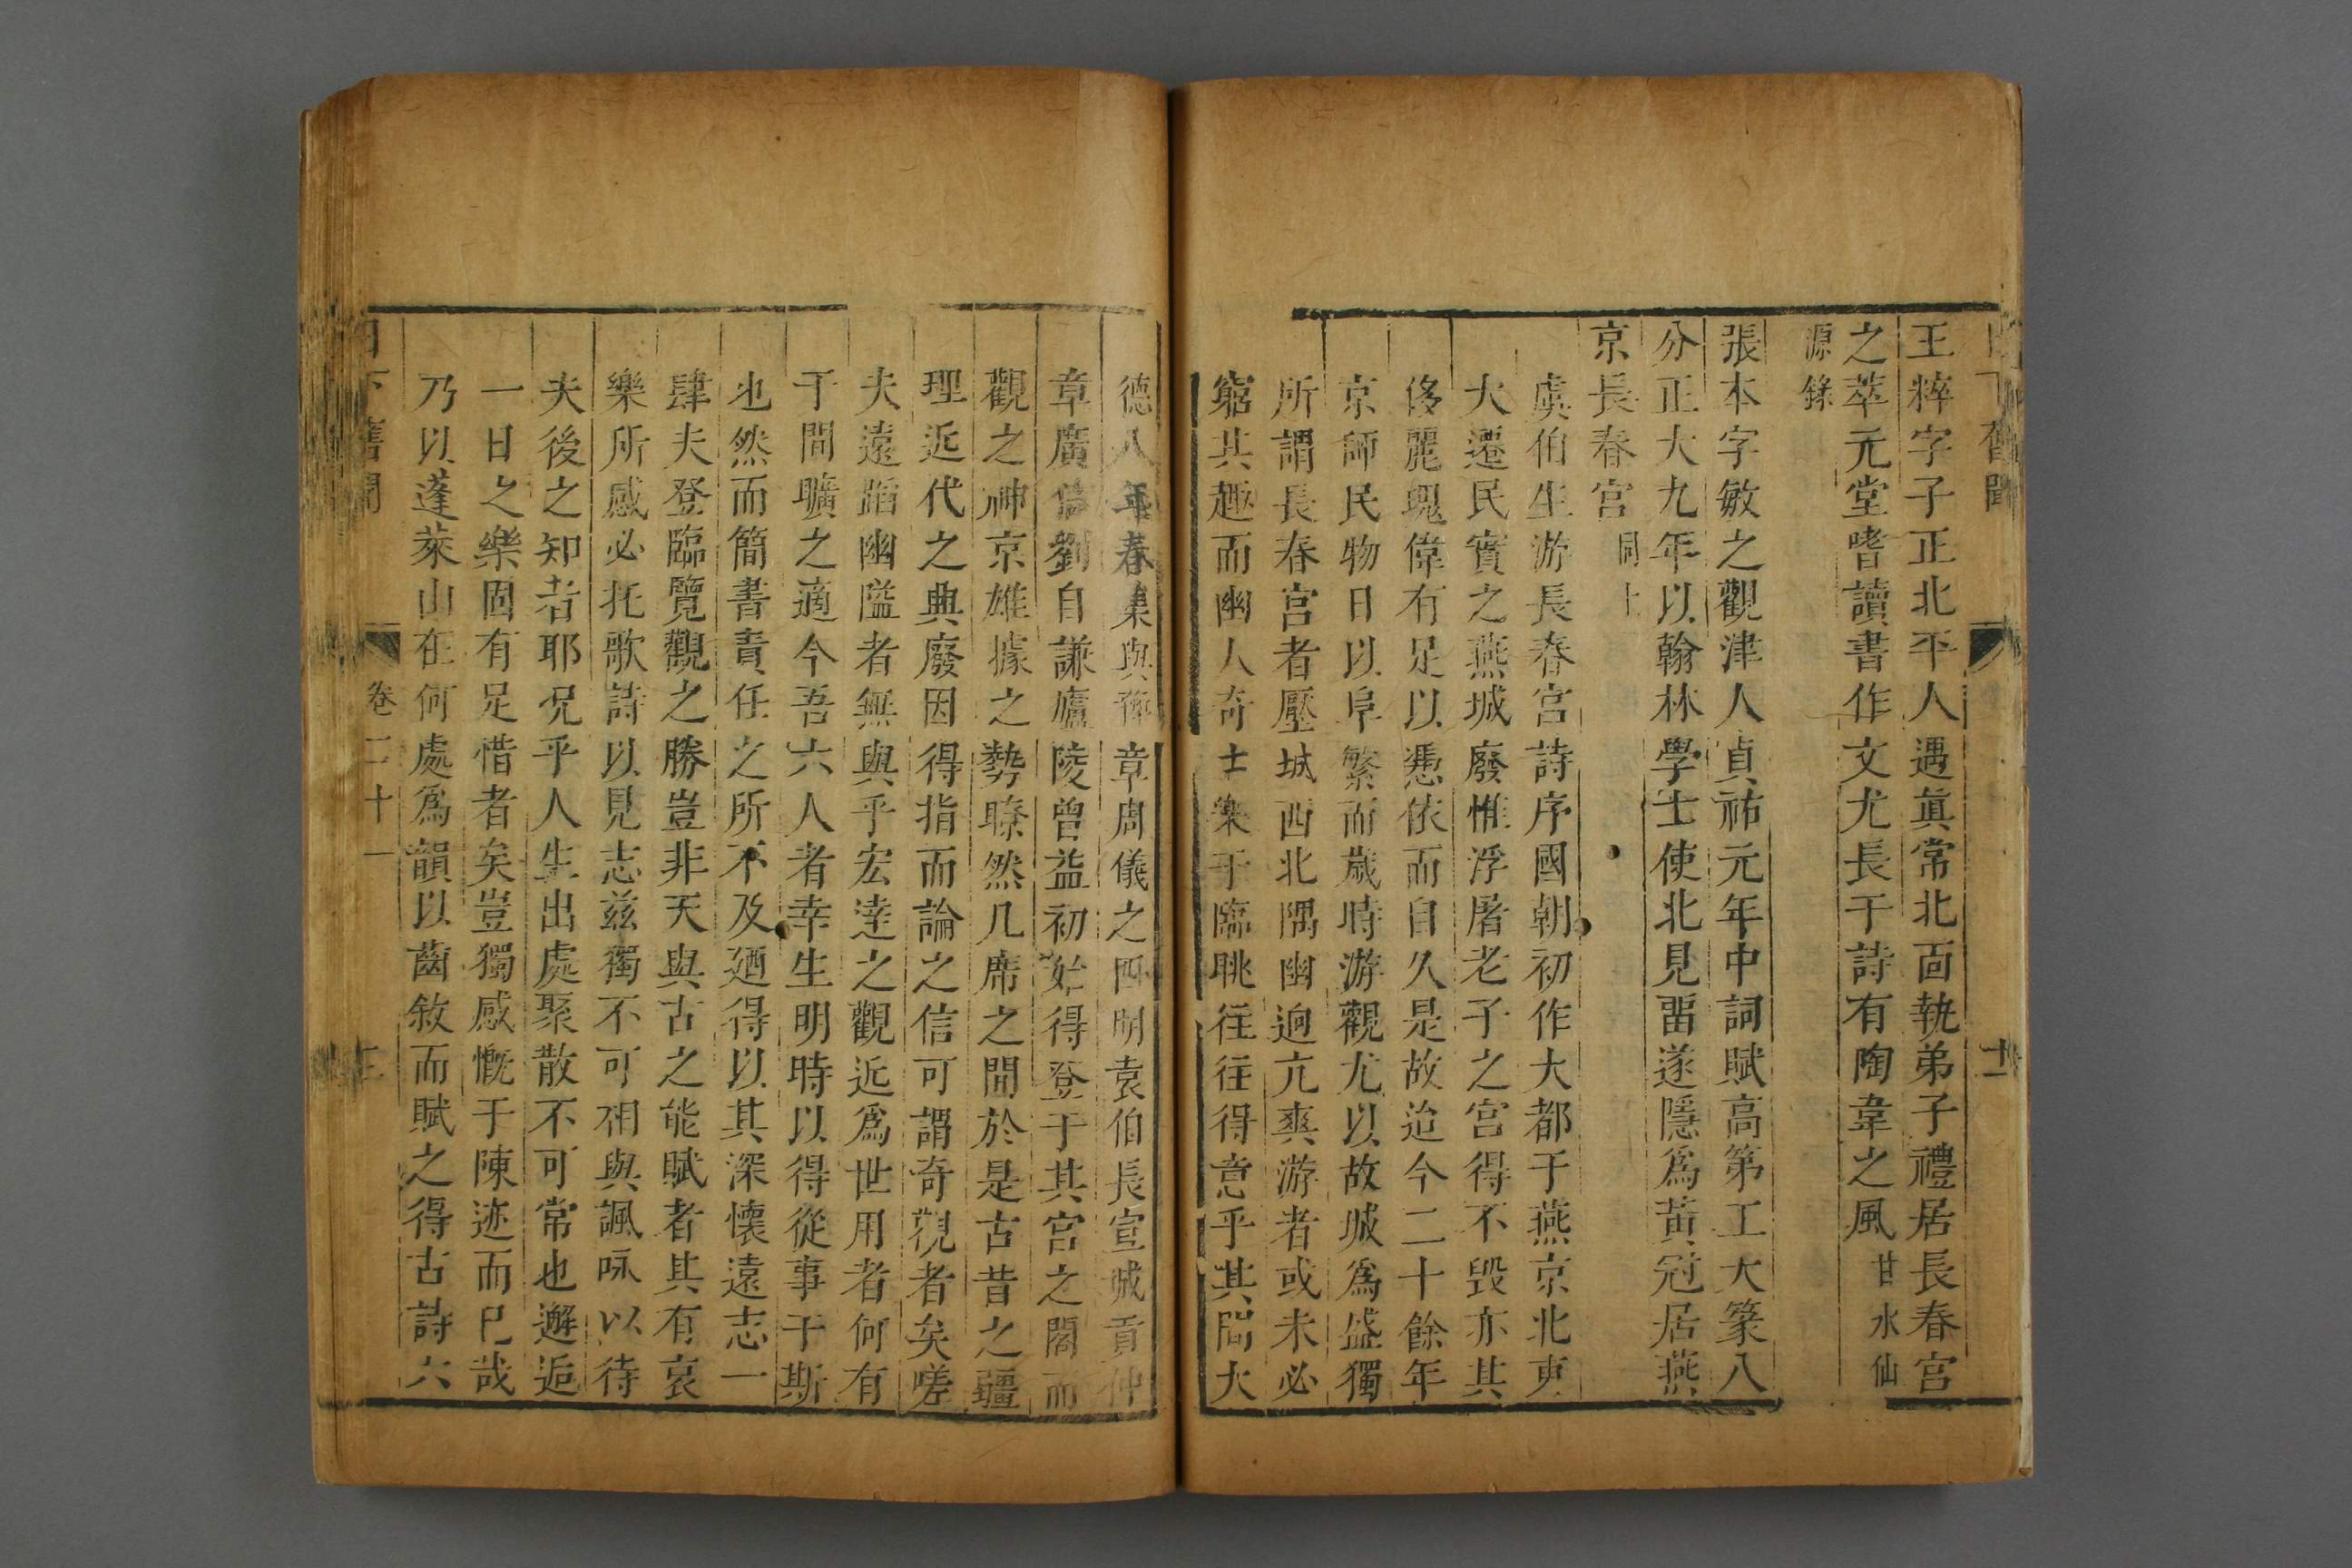 日下舊聞
十二
王粹字子正北平人遇眞常北面執弟子禮居長春宮
之萃元堂嗜讀書作文尤長于詩有陶韋之風甘水仙
源錄
張本字敏之觀津人貞祐元年中詞賦高第工大篆八
分正大九年以翰林學士使北見畱遂隱爲黃冠居燕
京長春宮同上
虞伯生游長春宮詩序國朝初作大都于燕京北東
大遷民實之燕城廢惟浮屠老子之宮得不毀亦其
侈麗瑰偉有足以憑依而自久是故迨今二十餘年
京師民物日以阜繁而歲時游觀尤以故城爲盛獨
所謂長春宮者壓城西北隅幽迥亢爽游者或未必
窮其趣而幽人奇士樂于臨眺往往得意乎其間大
德八年春集與豫章周儀之四明袁伯長宣城貢仲
章廣信劉自謙廬陵曾益初始得登于其宮之閣而
觀之神京雄據之勢瞭然几席之間於是古昔之疆
理近代之典廢因得指而論之信可謂奇觀者矣嗟
夫遠蹈幽隘者無與乎宏達之觀近爲世用者何有
于閒曠之適今吾六人者幸生明時以得從事于斯
也然而簡書責任之所不及廼得以其深懷遠志一
肆夫登臨覽觀之勝豈非天與古之能賦者其有哀
樂所感必托歌詩以見志兹獨不可相與諷咏以待
夫後之知者耶况乎人生出處聚散不可常也邂逅
一日之樂固有足惜者矣豈獨感慨于陳迹而已哉
乃以蓬萊山在何處爲韻以齒敘而賦之得古詩六
日下舊聞
卷二十一